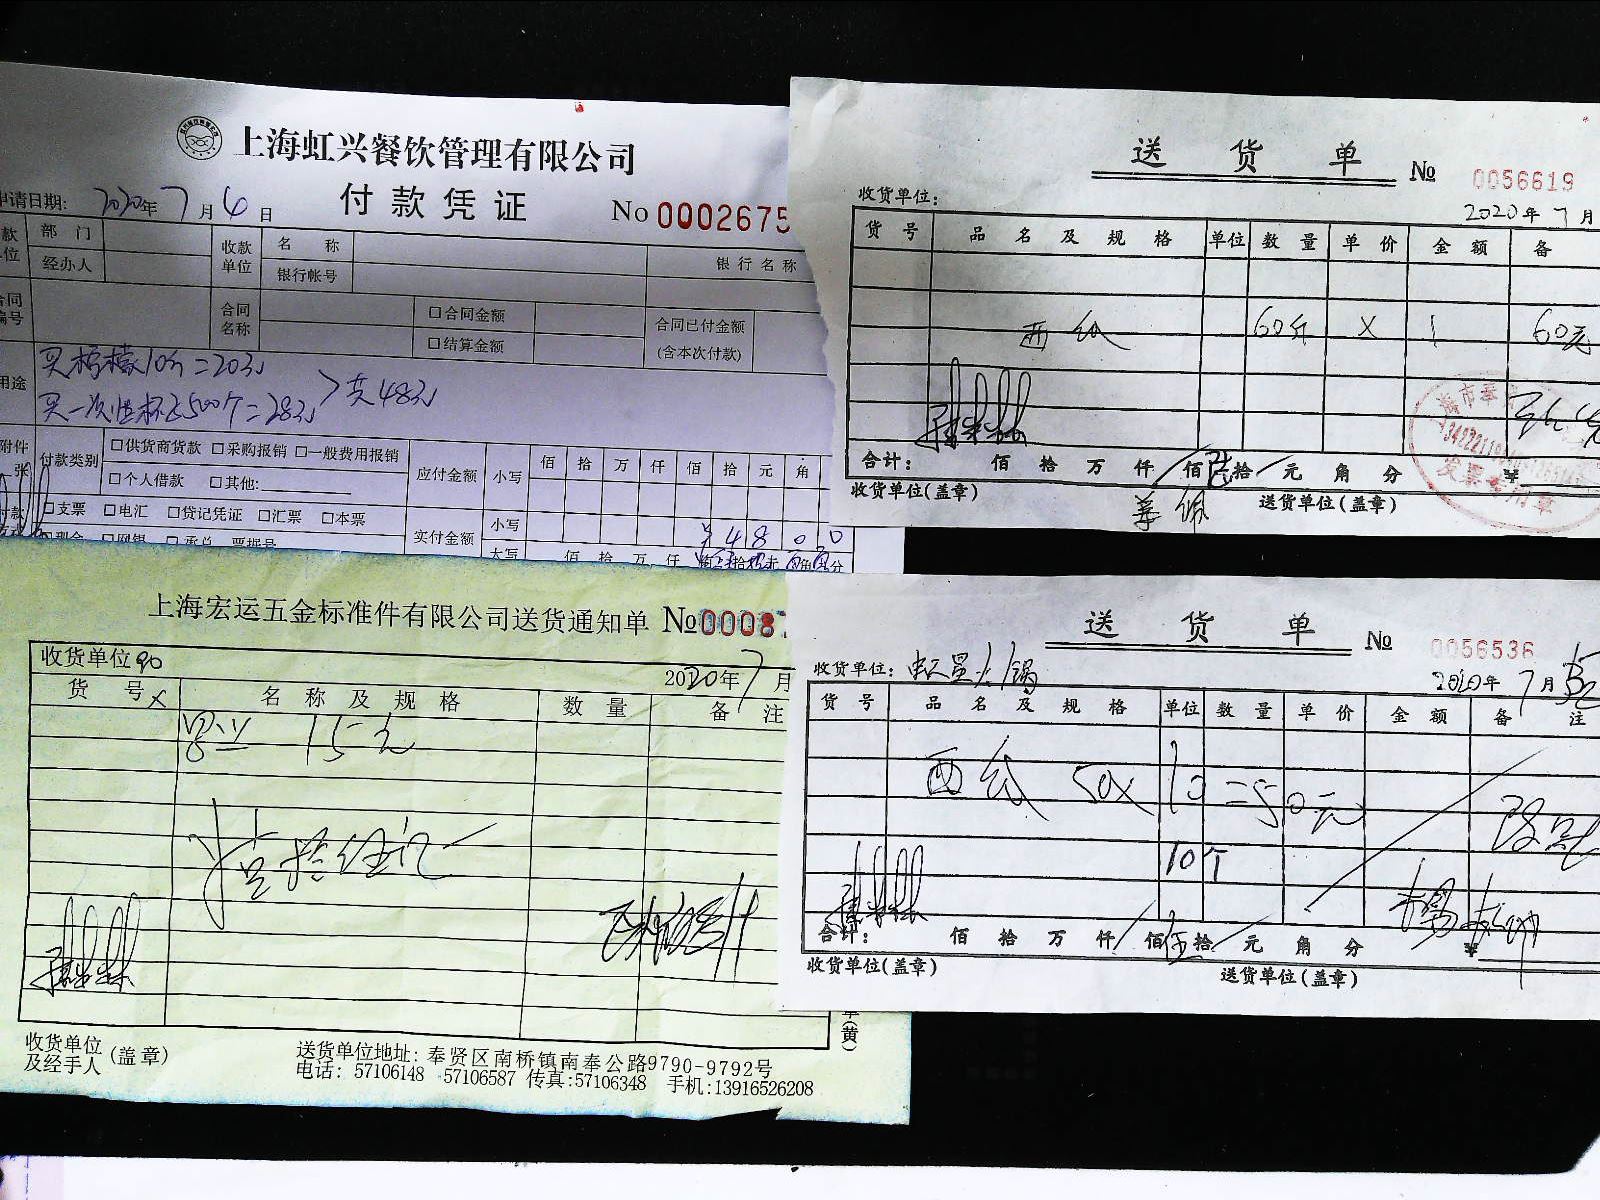 上海虹兴餐饮管理有限公司
付款凭证
No 0002675
申请日期: 2020年7月6日
部门
经办人
收款单位
名称
银行帐号
银行名称
合同名称
□合同金额
□结算金额
合同已付金额
(含本次付款)
用途
买柠檬10个=20元
买一次性杯子500个=28元
共48元
附件
张
付款类别
□供货商货款 □采购报销 □一般费用报销
□个人借款 □其他:
应付金额
小写
佰 拾 万 仟 佰 拾 元 角
□支票 □电汇 □贷记凭证 □汇票 □本票
□现金 □网银 □承兑 票据号
实付金额
小写
4 8 0 0
大写
佰 拾 万 仟
送货单
№ 0056619
收货单位:
2020年7月
货号 品名及规格 单位 数量 单价 金额 备
60个 X 60元
合计: 佰 拾 万 仟 佰 拾 元 角 分 ¥
收货单位(盖章) 送货单位(盖章)
发票专用章
上海宏运五金标准件有限公司送货通知单 №00087
收货单位
2020年7月
货号 名称及规格 数量 备注
15元
收货单位
及经手人 (盖章)
送货单位地址: 奉贤区南桥镇南奉公路9790-9792号
电话: 57106148 57106587 传真:57106348 手机:13916526208
送货单
№ 0056536
收货单位:
2020年7月
货号 品名及规格 单位 数量 单价 金额 备注
50X 10 =50元
10个
合计: 佰 拾 万 仟 佰 伍拾 元 角 分 ¥
收货单位(盖章) 送货单位(盖章)